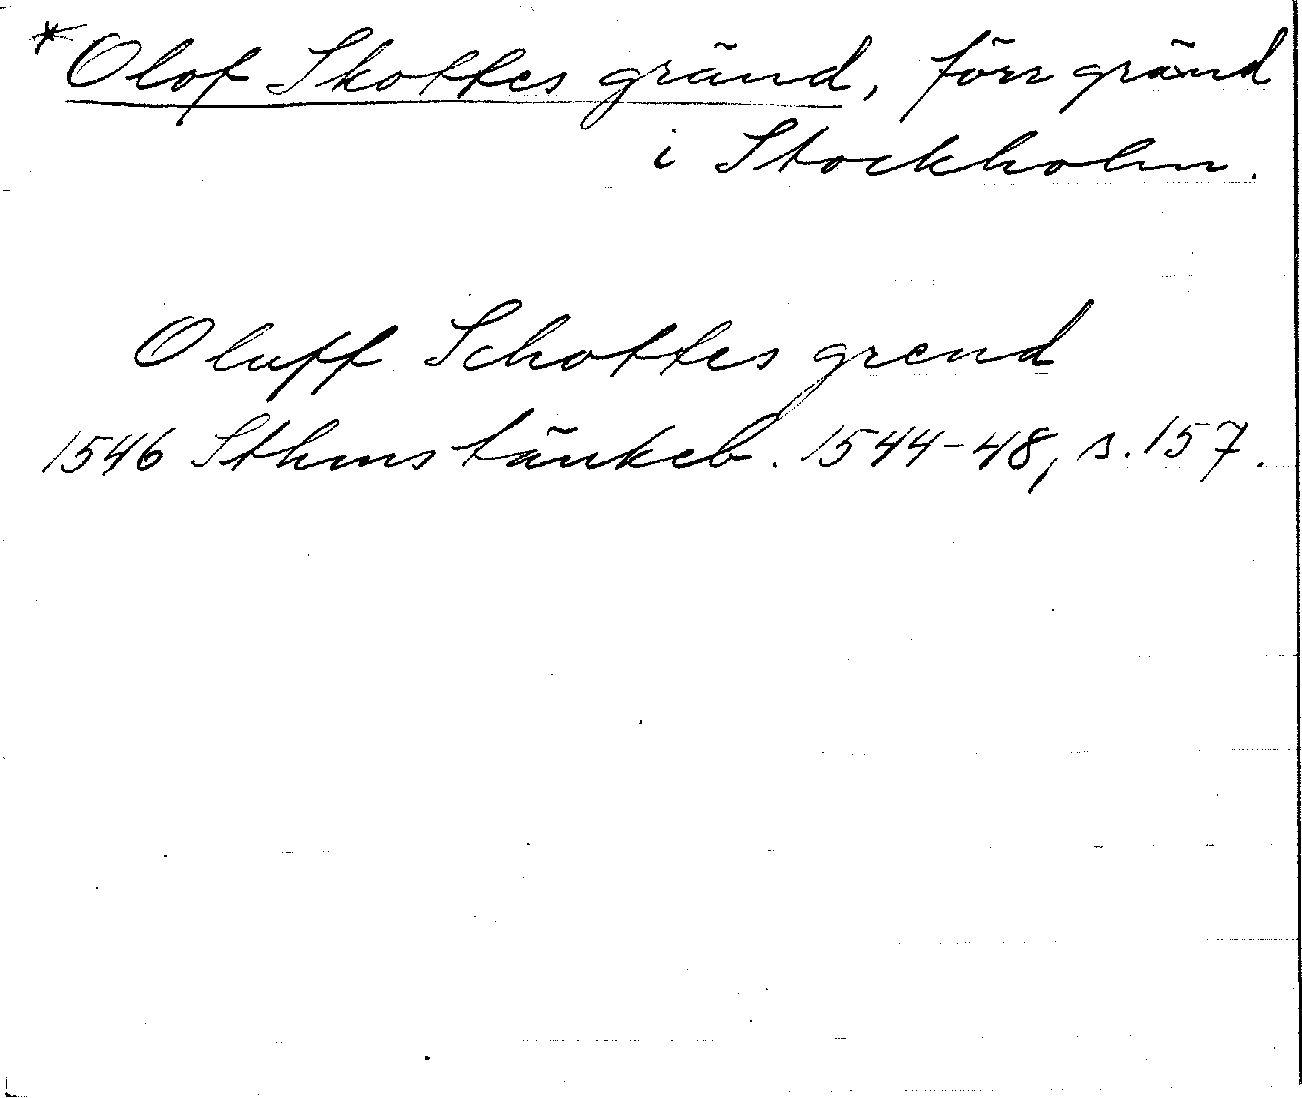 *Olof Skottes gränd, förr gränd
i Stockholm.
Oluff Schottes grend
1546 Sthms tänkeb. 1544-48, s. 157.